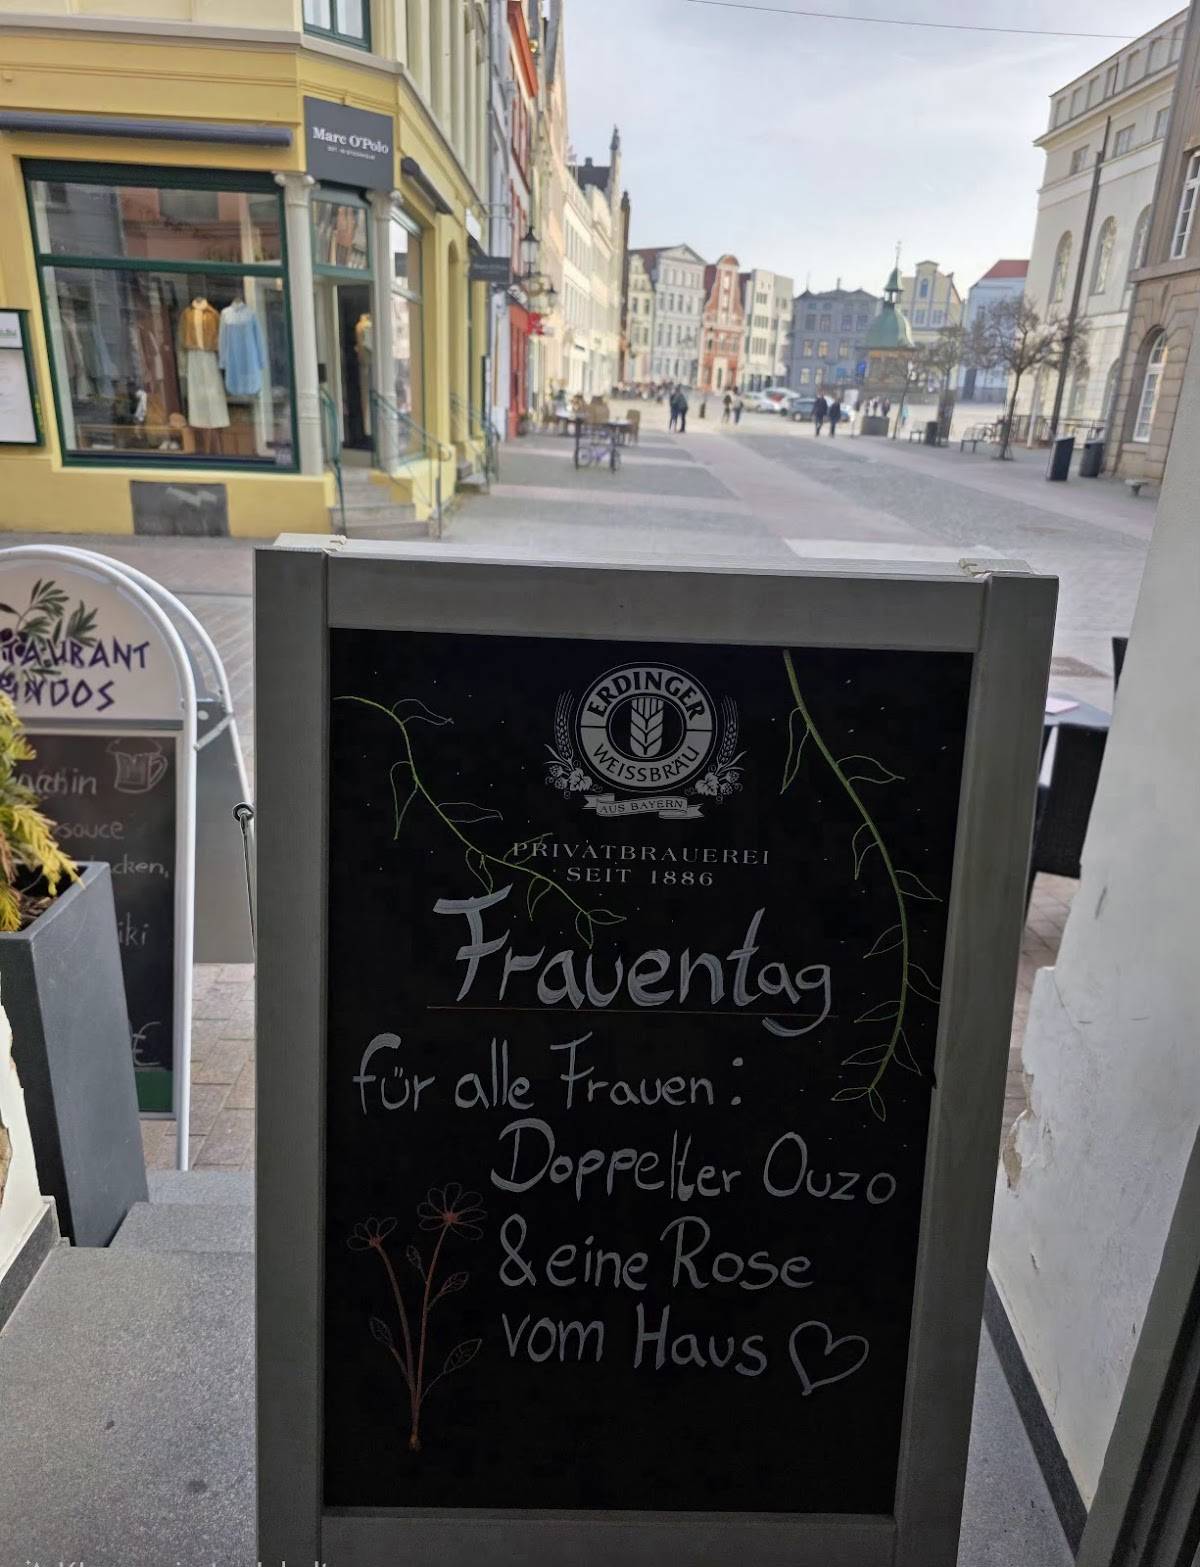 Marc O'Polo
TAURANT
NDOS
sauce
cken,
iki
€
ERDINGER
WEISSBRÄU
AUS BAYERN
PRIVATBRAUEREI
SEIT 1886
Frauentag
für alle Frauen:
Doppelter Ouzo
& eine Rose
vom Haus ♡